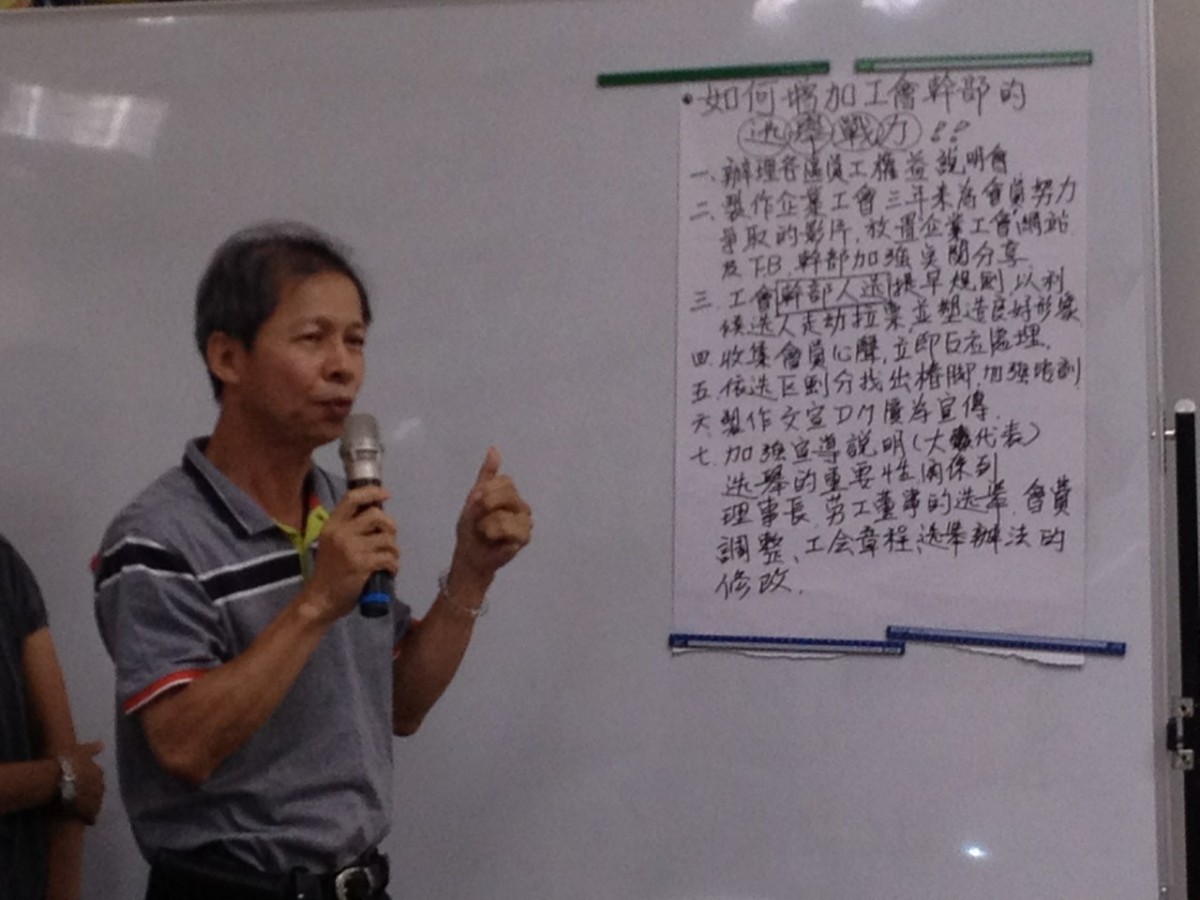 • 如何增加工會幹部的
选舉戰力!!
一、辦理各區員工權益說明會
二、製作企業工會三年來為會員努力
爭取的影片,放置企業工會網站
及F.B,幹部加強突閱分享
三、工會幹部人选提早規劃,以利
候选人走动拉票並塑造良好形象
四、收集會員心聲,立即反应處理.
五、依选区劃分找出樁脚,加強培訓
六、製作文宣DM廣為宣傳.
七、加強宣導說明(大會代表)
选舉的重要性関係到
理事長、劳工董事的选举、會費
調整、工会章程、选举辦法的
修改.